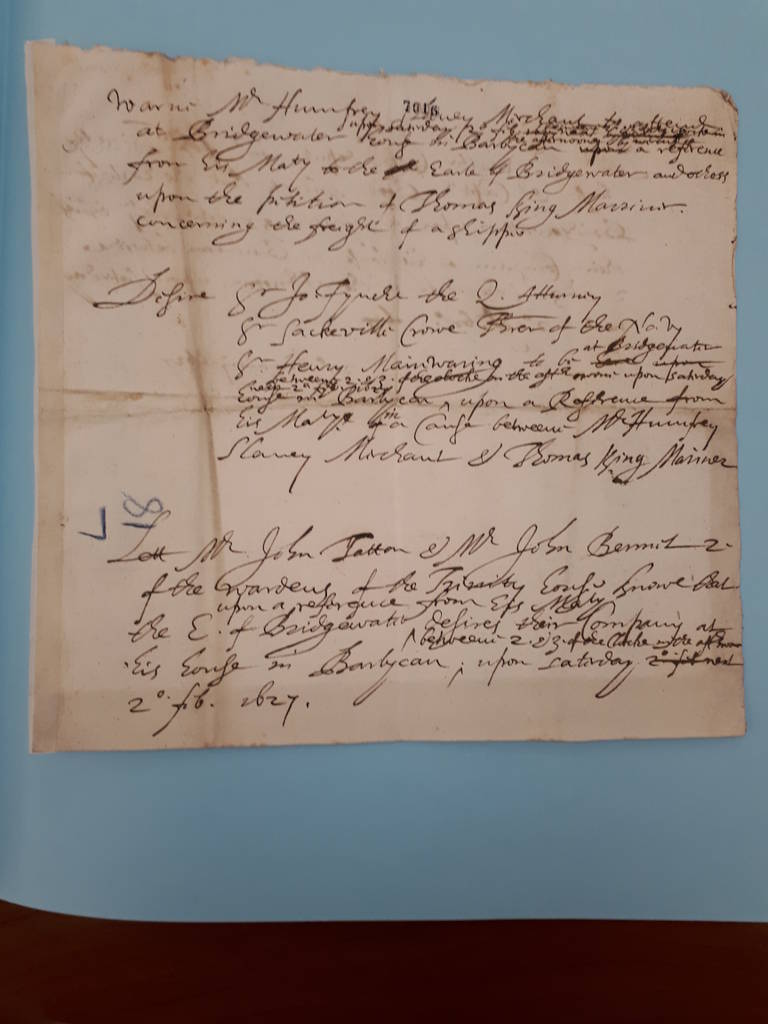 7016
Warne Mr Humfrey Slaney Merchant to attend
upon Saturday 2o feb.
at Bridgewater house in Barbycan upon a reference
from his Maty to the Earle of Bridgewater and others
upon the petition of Thomas King Marriner.
concerning the freight of a shippe
Desire Sr Jo: Fynche the Q. Atturney
Sr Sackeville Crowe Trer of the Navy
Sr Henry Mainwaring to be at Bridgewater
betweene 2. & 3. of the clocke in the afternoone upon Saturday
next 2o feb. 1627
house in Barbycan upon a Reference from
his Maty in a Cause betweene Mr Humfrey
Slaney Merchant & Thomas King Mariner
L 18
Lett Mr John Tatton & Mr John Bennet 2.
of the wardens of the Trinity house knowe that
upon a reference from his Maty
the E. of Bridgewater desires their Company at
betweene 2. & 3. of the Clocke in the afternoone
his house in Barbycan, upon Saturday 2o feb next
2o. feb. 1627.